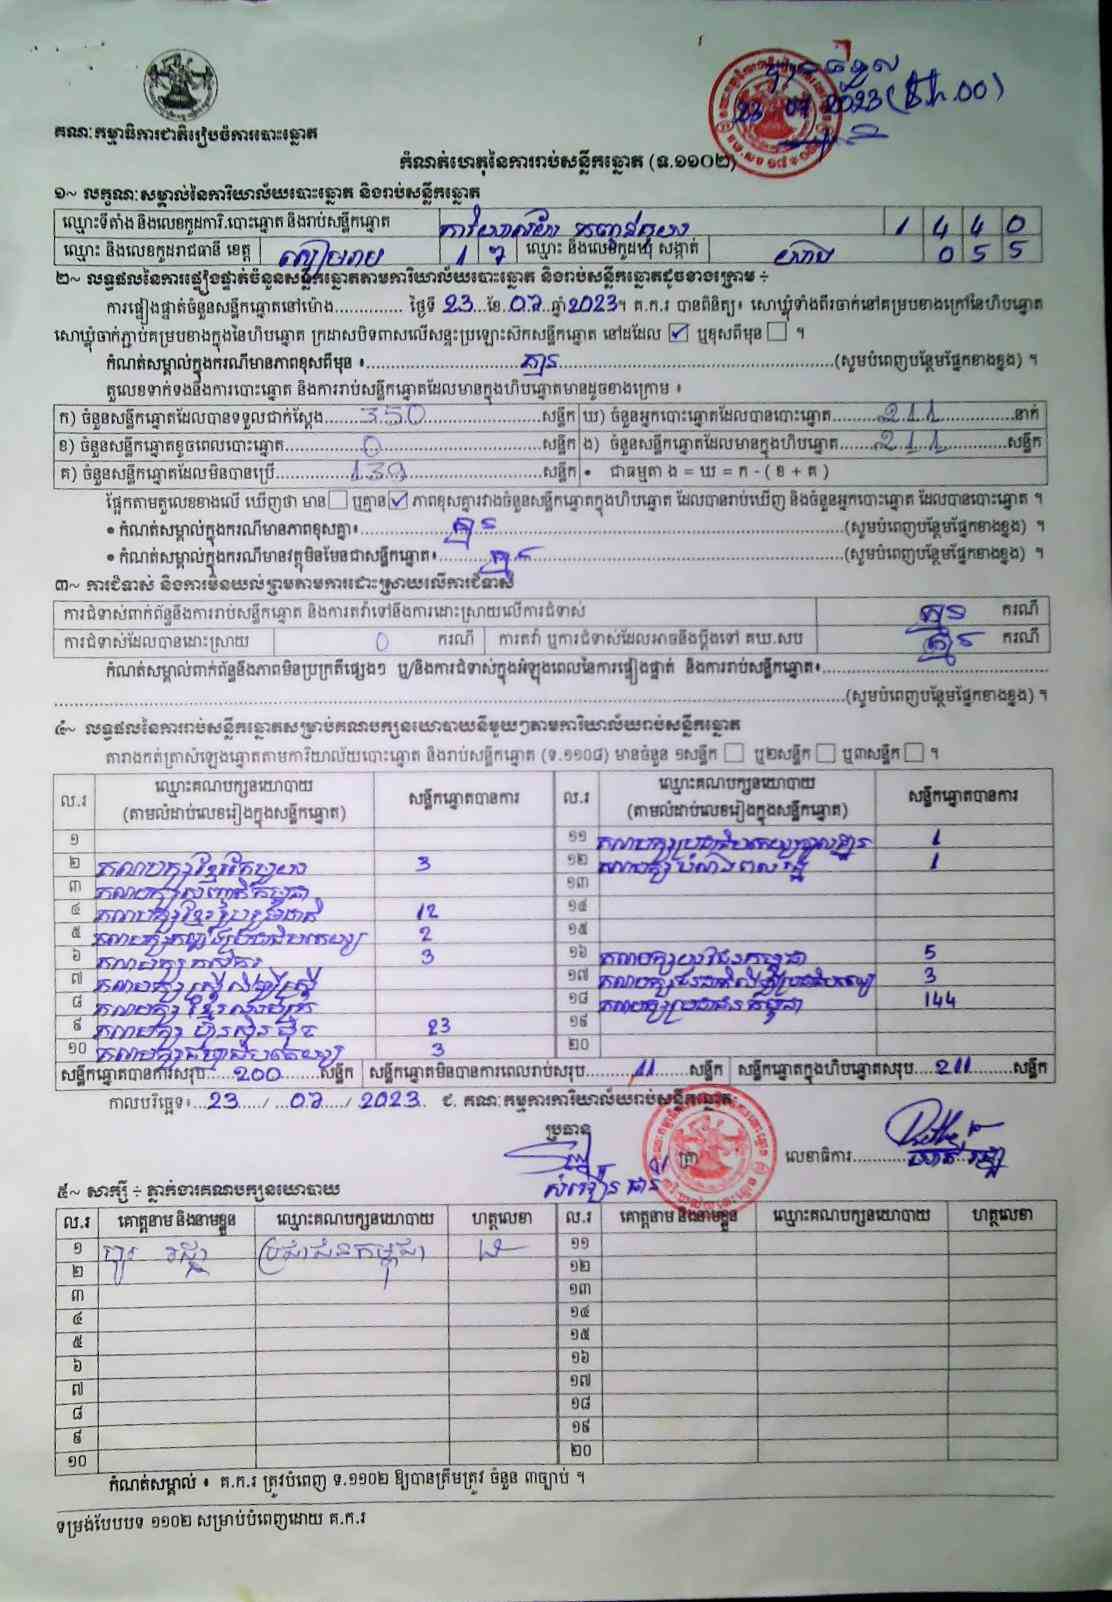 គណៈកម្មាធិការជាតិរៀបចំការបោះឆ្នោត
23 07 2023
កំណត់ហេតុនៃការរាប់សន្លឹកឆ្នោត (ទ.១១០២)
១~ លក្ខណៈសម្គាល់នៃការិយាល័យបោះឆ្នោត និងរាប់សន្លឹកឆ្នោត
ឈ្មោះទីតាំង និងលេខកូដការិ.បោះឆ្នោត និងរាប់សន្លឹកឆ្នោត 1 4 4 0
ឈ្មោះ និងលេខកូដរាជធានី ខេត្ត សៀមរាប 1 7 ឈ្មោះ និងលេខកូដឃុំ សង្កាត់ 0 5 5
២~ លទ្ធផលនៃការផ្ទៀងផ្ទាត់ចំនួនសន្លឹកឆ្នោតតាមការិយាល័យបោះឆ្នោត និងរាប់សន្លឹកឆ្នោតដូចខាងក្រោម ÷
ការផ្ទៀងផ្ទាត់ចំនួនសន្លឹកឆ្នោតនៅម៉ោង.............. ថ្ងៃទី 23 ខែ 07 ឆ្នាំ 2023។ គ.ក.រ បានពិនិត្យ៖ សោឃ្លុំទាំងពីរចាក់នៅគម្របខាងក្រៅនៃហិបឆ្នោត
សោឃ្លុំចាក់ភ្ជាប់គម្របខាងក្នុងនៃហិបឆ្នោត ក្រដាសបិទពាសលើសន្ទះប្រឡោះស៊កសន្លឹកឆ្នោត នៅដដែល ☑ ឬខុសពីមុន ☐ ។
កំណត់សម្គាល់ក្នុងករណីមានភាពខុសពីមុន ៖ គ្មាន (សូមបំពេញបន្ថែមផ្នែកខាងខ្នង) ។
តួលេខទាក់ទងនឹងការបោះឆ្នោត និងការរាប់សន្លឹកឆ្នោតដែលមានក្នុងហិបឆ្នោតមានដូចខាងក្រោម ៖
ក) ចំនួនសន្លឹកឆ្នោតដែលបានទទួលជាក់ស្តែង 350 សន្លឹក ឃ) ចំនួនអ្នកបោះឆ្នោតដែលបានបោះឆ្នោត 211 នាក់
ខ) ចំនួនសន្លឹកឆ្នោតខូចពេលបោះឆ្នោត 0 សន្លឹក ង) ចំនួនសន្លឹកឆ្នោតដែលមានក្នុងហិបឆ្នោត 211 សន្លឹក
គ) ចំនួនសន្លឹកឆ្នោតដែលមិនបានប្រើ 139 សន្លឹក • ជាធម្មតា ង = ឃ = ក - ( ខ + គ )
ផ្អែកតាមតួលេខខាងលើ ឃើញថា មាន ☐ ឬគ្មាន ☑ ភាពខុសគ្នារវាងចំនួនសន្លឹកឆ្នោតក្នុងហិបឆ្នោត ដែលបានរាប់ឃើញ និងចំនួនអ្នកបោះឆ្នោត ដែលបានបោះឆ្នោត ។
• កំណត់សម្គាល់ក្នុងករណីមានភាពខុសគ្នា៖ គ្មាន (សូមបំពេញបន្ថែមផ្នែកខាងខ្នង) ។
• កំណត់សម្គាល់ក្នុងករណីមានវត្ថុមិនមែនជាសន្លឹកឆ្នោត៖ គ្មាន (សូមបំពេញបន្ថែមផ្នែកខាងខ្នង) ។
៣~ ការជំទាស់ និងការមិនយល់ព្រមតាមការដោះស្រាយលើការជំទាស់
ការជំទាស់ពាក់ព័ន្ធនឹងការរាប់សន្លឹកឆ្នោត និងការតវ៉ាទៅនឹងការដោះស្រាយលើការជំទាស់ គ្មាន ករណី
ការជំទាស់ដែលបានដោះស្រាយ 0 ករណី ការតវ៉ា ឬការជំទាស់ដែលអាចនឹងប្តឹងទៅ គឃ.សប គ្មាន ករណី
កំណត់សម្គាល់ពាក់ព័ន្ធនឹងភាពមិនប្រក្រតីផ្សេងៗ ឬ/និងការជំទាស់ក្នុងអំឡុងពេលនៃការផ្ទៀងផ្ទាត់ និងការរាប់សន្លឹកឆ្នោត៖
(សូមបំពេញបន្ថែមផ្នែកខាងខ្នង) ។
៤~ លទ្ធផលនៃការរាប់សន្លឹកឆ្នោតសម្រាប់គណបក្សនយោបាយនីមួយៗតាមការិយាល័យរាប់សន្លឹកឆ្នោត
តារាងកត់ត្រាសំឡេងឆ្នោតតាមការិយាល័យបោះឆ្នោត និងរាប់សន្លឹកឆ្នោត (ទ.១១០៨) មានចំនួន ១សន្លឹក ☐ ឬ២សន្លឹក ☐ ឬ៣សន្លឹក ☐ ។
ល.រ ឈ្មោះគណបក្សនយោបាយ (តាមលំដាប់លេខរៀងក្នុងសន្លឹកឆ្នោត) សន្លឹកឆ្នោតបានការ ល.រ ឈ្មោះគណបក្សនយោបាយ (តាមលំដាប់លេខរៀងក្នុងសន្លឹកឆ្នោត) សន្លឹកឆ្នោតបានការ
១ ១១ 1
២ គណបក្សខ្មែរតែមួយ 3 ១២ 1
៣ គណបក្សសញ្ជាតិកម្ពុជា ១៣
៤ 12 ១៤
៥ 2 ១៥
៦ គណបក្សកសិករ 3 ១៦ គណបក្សយុវជនកម្ពុជា 5
៧ គណបក្សស្ត្រីដើម្បីស្ត្រី ១៧ 3
៨ គណបក្សខ្មែររួបរួម ១៨ គណបក្សប្រជាជនកម្ពុជា 144
៩ គណបក្សហ្វ៊ុនស៊ិនប៉ិច 23 ១៩
១០ 3 ២០
សន្លឹកឆ្នោតបានការសរុប 200 សន្លឹក សន្លឹកឆ្នោតមិនបានការពេលរាប់សរុប 11 សន្លឹក សន្លឹកឆ្នោតក្នុងហិបឆ្នោតសរុប 211 សន្លឹក
កាលបរិច្ឆេទ៖ 23 / 07 / 2023 ជ. គណៈកម្មការការិយាល័យរាប់សន្លឹកឆ្នោត
ប្រធាន
ត្រា លេខាធិការ
៥~ សាក្សី ÷ ភ្នាក់ងារគណបក្សនយោបាយ
ល.រ គោត្តនាម និងនាមខ្លួន ឈ្មោះគណបក្សនយោបាយ ហត្ថលេខា ល.រ គោត្តនាម និងនាមខ្លួន ឈ្មោះគណបក្សនយោបាយ ហត្ថលេខា
១ ប្រជាជនកម្ពុជា ១១
២ ១២
៣ ១៣
៤ ១៤
៥ ១៥
៦ ១៦
៧ ១៧
៨ ១៨
៩ ១៩
១០ ២០
កំណត់សម្គាល់ ៖ គ.ក.រ ត្រូវបំពេញ ទ.១១០២ ឱ្យបានត្រឹមត្រូវ ចំនួន ៣ច្បាប់ ។
ទម្រង់បែបបទ ១១០២ សម្រាប់បំពេញដោយ គ.ក.រ